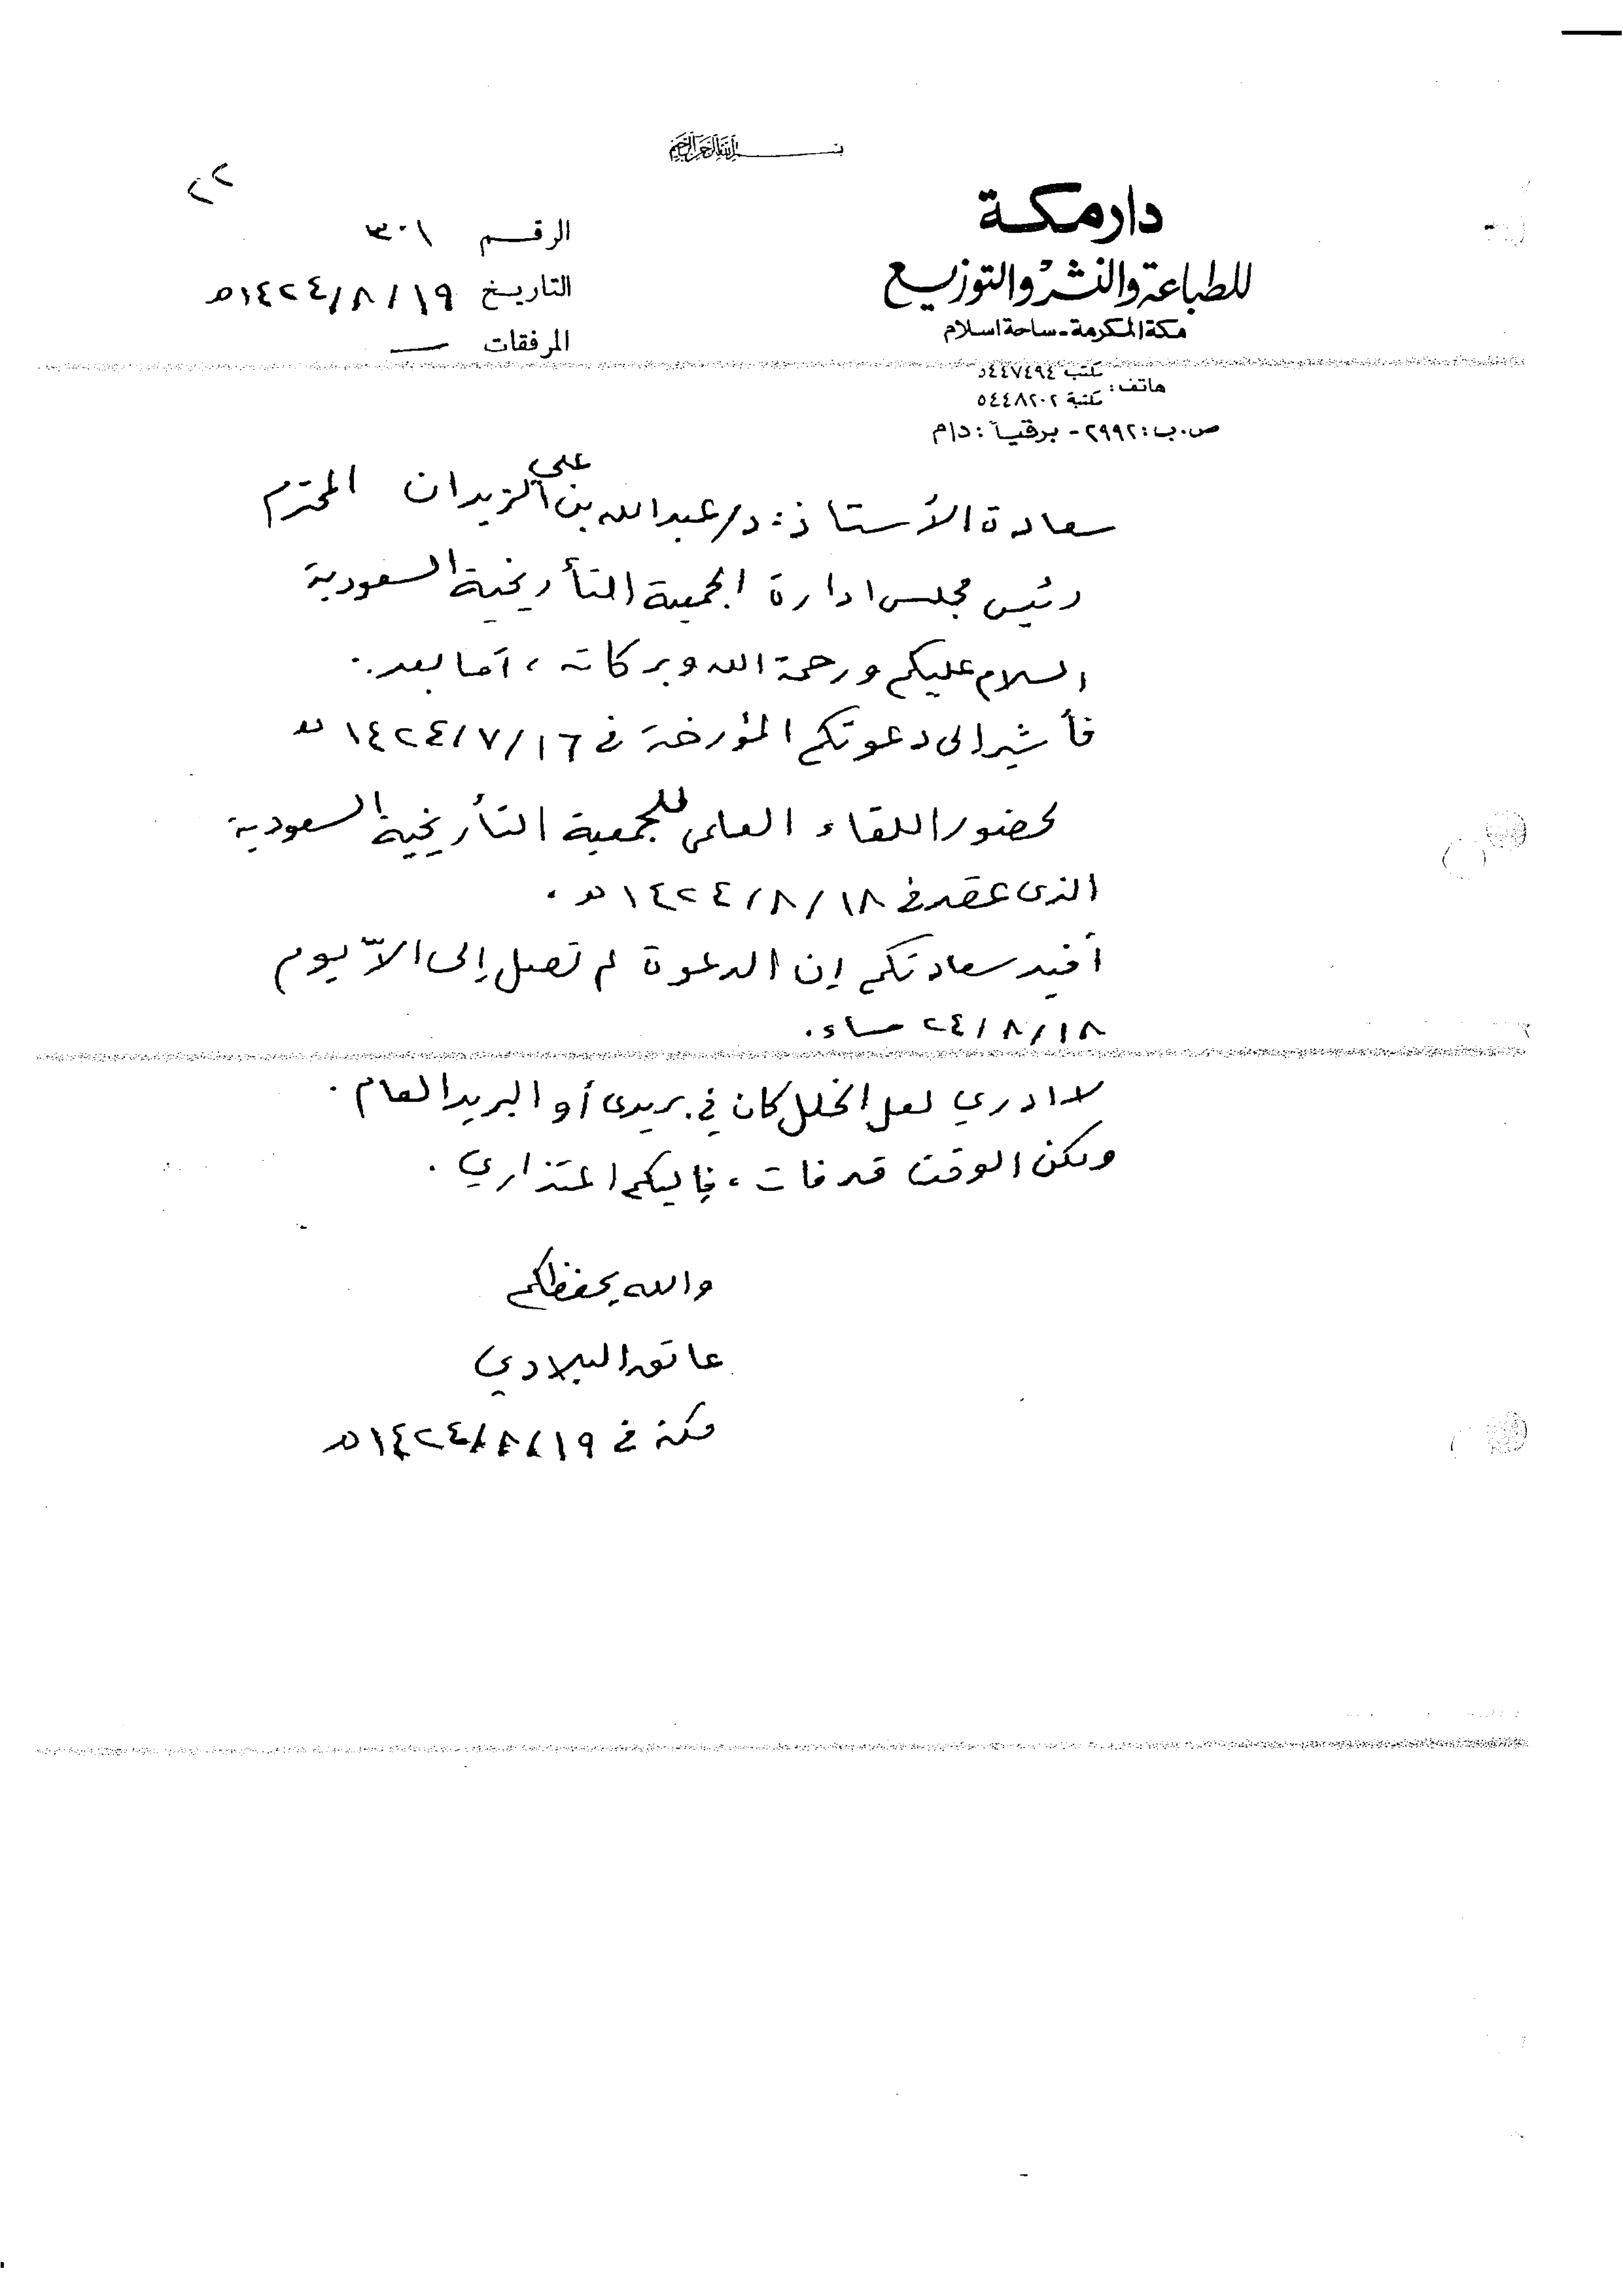 بسم الله الرحمن الرحيم
٢٢
دار مكة
للطباعة والنشر والتوزيع
مكة المكرمة - ساحة اسلام
هاتف: مكتب ٥٤٤٧٤٩٤
مكتبة ٥٤٤٨٢٠٢
ص.ب: ٢٩٩٢ - برقياً: دام
الرقم ٣٠١
التاريخ ١٩/٨/١٤٢٤هـ
المرفقات —
سعادة الأستاذ: د/عبدالله بن علي الزيدان المحترم
رئيس مجلس ادارة الجمعية التأريخية السعودية
السلام عليكم ورحمة الله وبركاته، أما بعد..
فأشير الى دعوتكم المؤرخة في ١٦/٧/١٤٢٤هـ
لحضور اللقاء العلمي للجمعية التأريخية السعودية
الذي عقد في ١٨/٨/١٤٢٤هـ.
أفيد سعادتكم إن الدعوة لم تصل إلى الاّ يوم
١٨/٨/٢٤ مساء.
لا ادري لعل الخلل كان في بريدى أو البريد العام.
ولكن الوقت قد فات، فإليكم اعتذاري.
والله يحفظكم
عاتق البلادي
مكة في ١٩/٨/١٤٢٤هـ